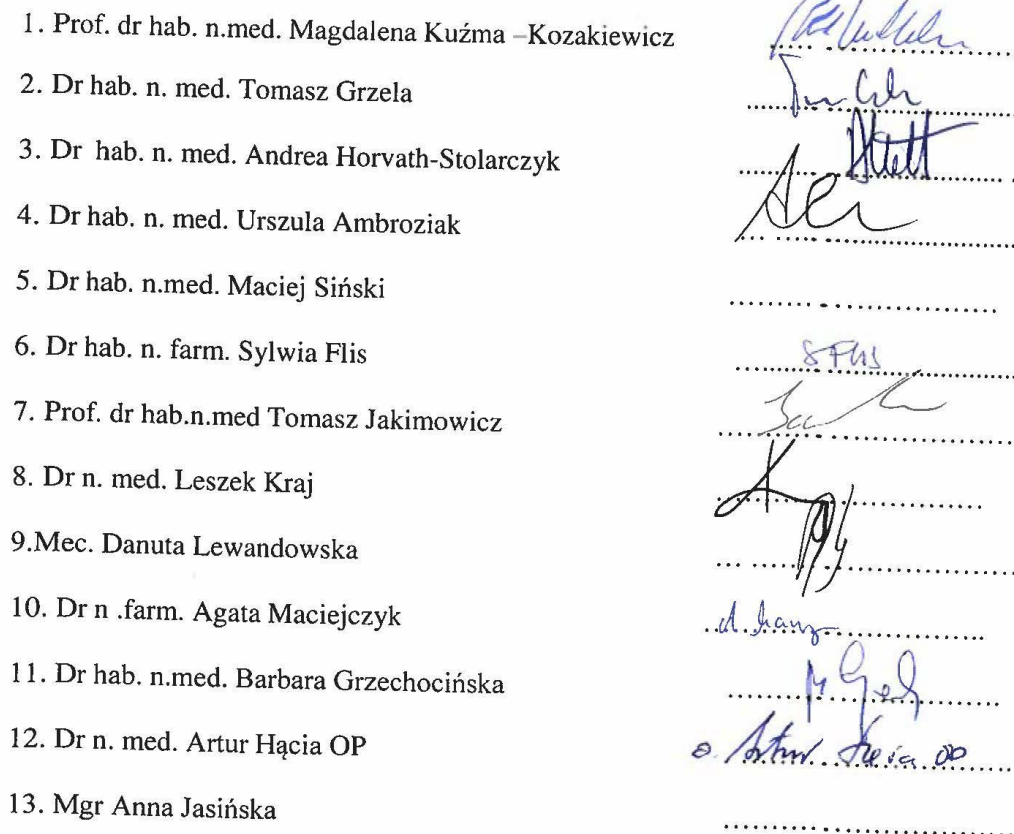 1. Prof. dr hab. n.med. Magdalena Kuźma –Kozakiewicz ....................
2. Dr hab. n. med. Tomasz Grzela ....................
3. Dr hab. n. med. Andrea Horvath-Stolarczyk ....................
4. Dr hab. n. med. Urszula Ambroziak ....................
5. Dr hab. n.med. Maciej Siński ....................
6. Dr hab. n. farm. Sylwia Flis SFlis
7. Prof. dr hab.n.med Tomasz Jakimowicz ....................
8. Dr n. med. Leszek Kraj ....................
9.Mec. Danuta Lewandowska ....................
10. Dr n .farm. Agata Maciejczyk ....................
11. Dr hab. n.med. Barbara Grzechocińska ....................
12. Dr n. med. Artur Hącia OP o. Artur Hącia OP
13. Mgr Anna Jasińska ....................